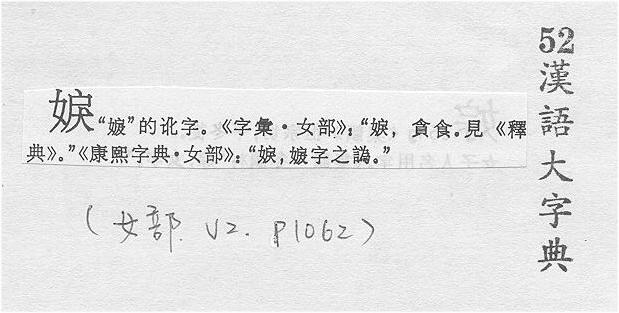 52漢語大字典
“”的讹字。《字彙·女部》：“，貪食。見《釋
典》。”《康熙字典·女部》：“，字之譌。”
(女部. V2. P1062)